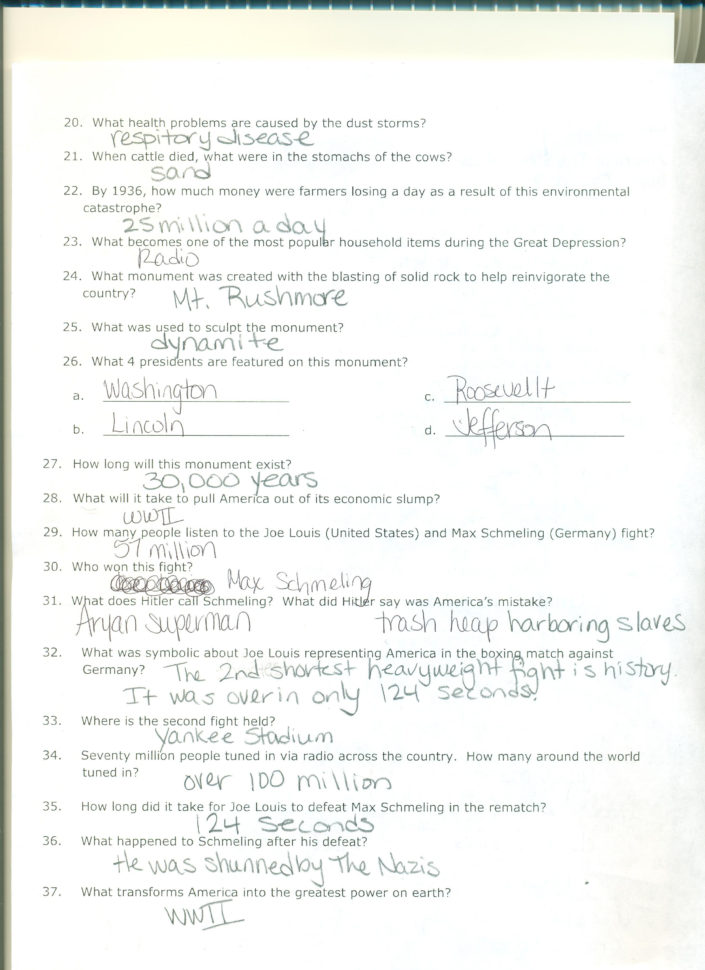 20. What health problems are caused by the dust storms?
respitory disease
21. When cattle died, what were in the stomachs of the cows?
sand
22. By 1936, how much money were farmers losing a day as a result of this environmental
catastrophe?
25 million a day
23. What becomes one of the most popular household items during the Great Depression?
Radio
24. What monument was created with the blasting of solid rock to help reinvigorate the
country? Mt. Rushmore
25. What was used to sculpt the monument?
dynamite
26. What 4 presidents are featured on this monument?
a. Washington c. Roosevellt
b. Lincoln d. Jefferson
27. How long will this monument exist?
30,000 years
28. What will it take to pull America out of its economic slump?
WWII
29. How many people listen to the Joe Louis (United States) and Max Schmeling (Germany) fight?
57 million
30. Who won this fight?
Max Schmeling
31. What does Hitler call Schmeling? What did Hitler say was America's mistake?
Aryan superman trash heap harboring slaves
32. What was symbolic about Joe Louis representing America in the boxing match against
Germany? The 2nd shortest heavyweight fight is history.
It was over in only 124 seconds.
33. Where is the second fight held?
Yankee Stadium
34. Seventy million people tuned in via radio across the country. How many around the world
tuned in? over 100 million
35. How long did it take for Joe Louis to defeat Max Schmeling in the rematch?
124 seconds
36. What happened to Schmeling after his defeat?
He was shunned by The Nazis
37. What transforms America into the greatest power on earth?
WWII